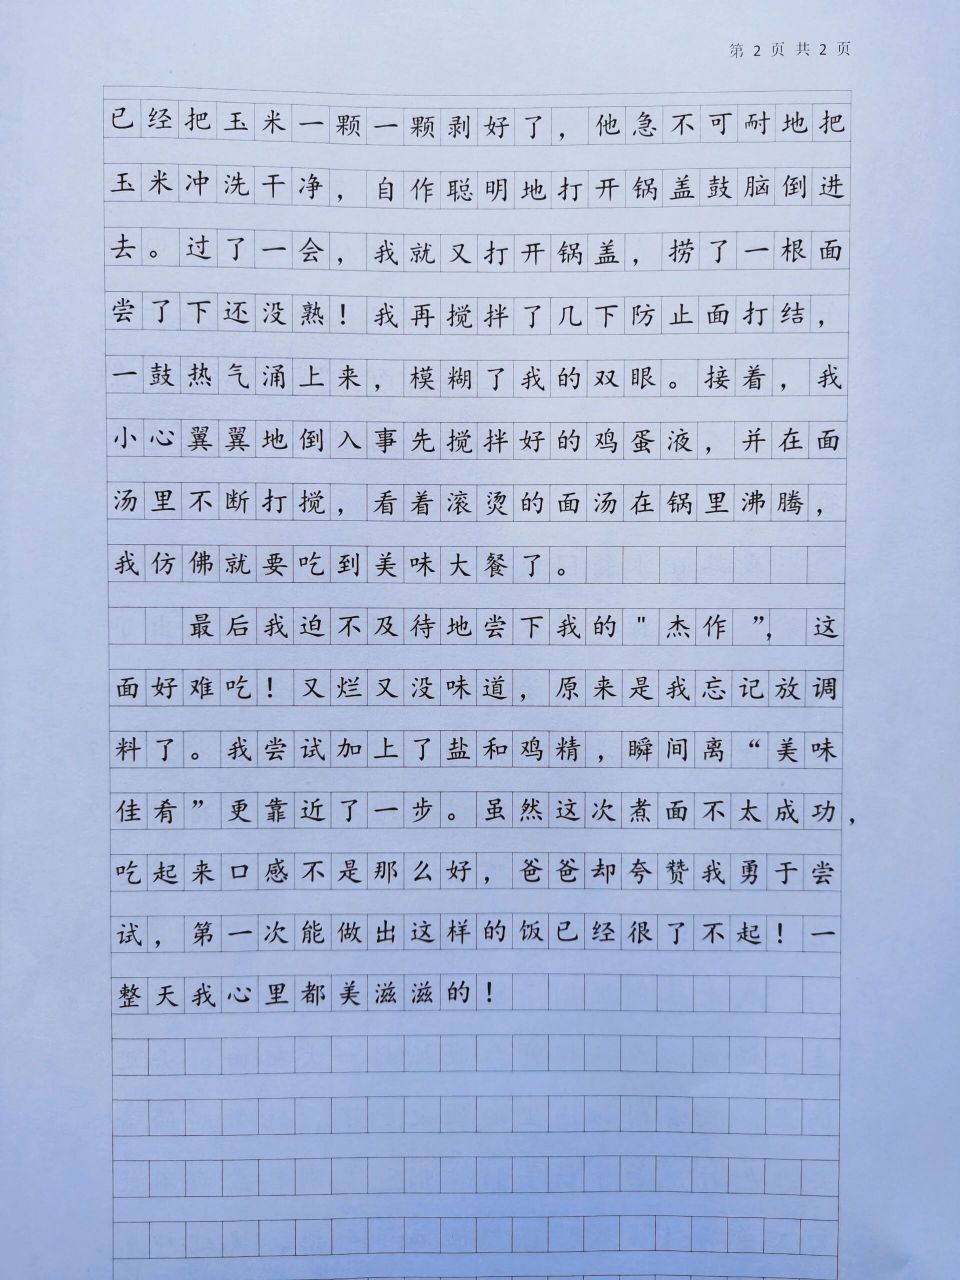 第 2 页 共 2 页
已经把玉米一颗一颗剥好了，他急不可耐地把
玉米冲洗干净，自作聪明地打开锅盖鼓脑倒进
去。过了一会，我就又打开锅盖，捞了一根面
尝了下还没熟！我再搅拌了几下防止面打结，
一鼓热气涌上来，模糊了我的双眼。接着，我
小心翼翼地倒入事先搅拌好的鸡蛋液，并在面
汤里不断打搅，看着滚烫的面汤在锅里沸腾，
我仿佛就要吃到美味大餐了。
最后我迫不及待地尝下我的"杰作"，这
面好难吃！又烂又没味道，原来是我忘记放调
料了。我尝试加上了盐和鸡精，瞬间离“美味
佳肴”更靠近了一步。虽然这次煮面不太成功，
吃起来口感不是那么好，爸爸却夸赞我勇于尝
试，第一次能做出这样的饭已经很了不起！一
整天我心里都美滋滋的！